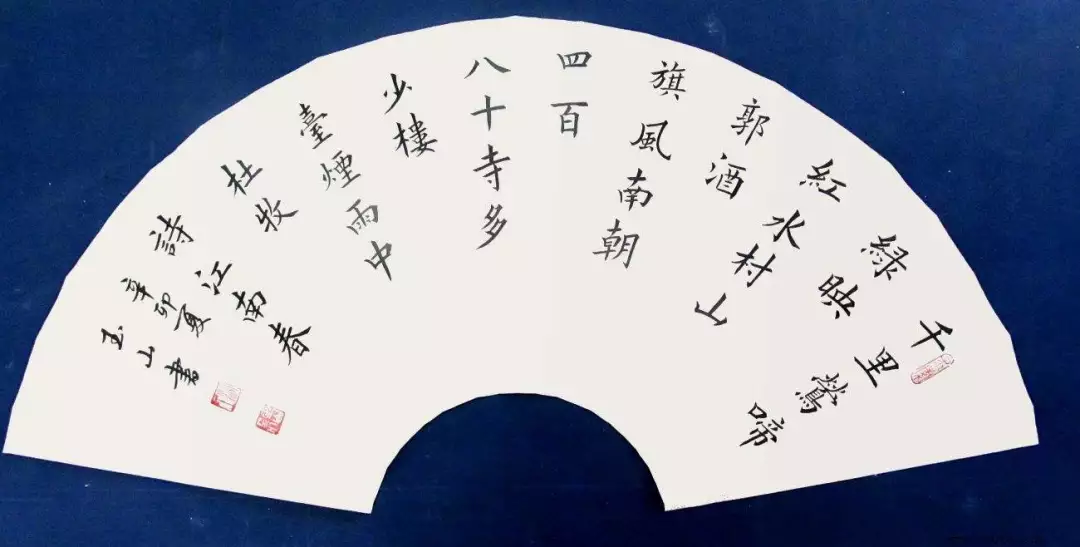 千里鶯啼
緑映
紅水村山
郭酒
旗風南朝
四百
八十寺多
少樓
臺煙雨中
杜牧
詩江南春
辛卯夏
玉山書